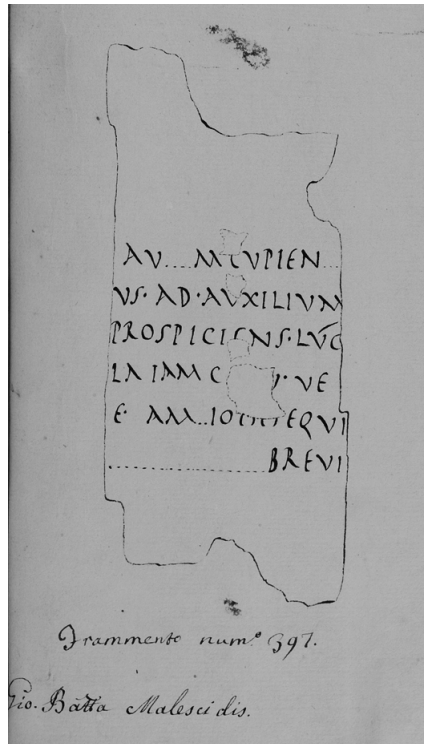 AV....MCVPIEN..
VS·AD·AVXILIVM
PROSPICIENS·LVC
LA IAM C VE
E· AM..IO EQVI
................BREVI
Frammento num.º 397.
Gio. Batta Malesci dis.